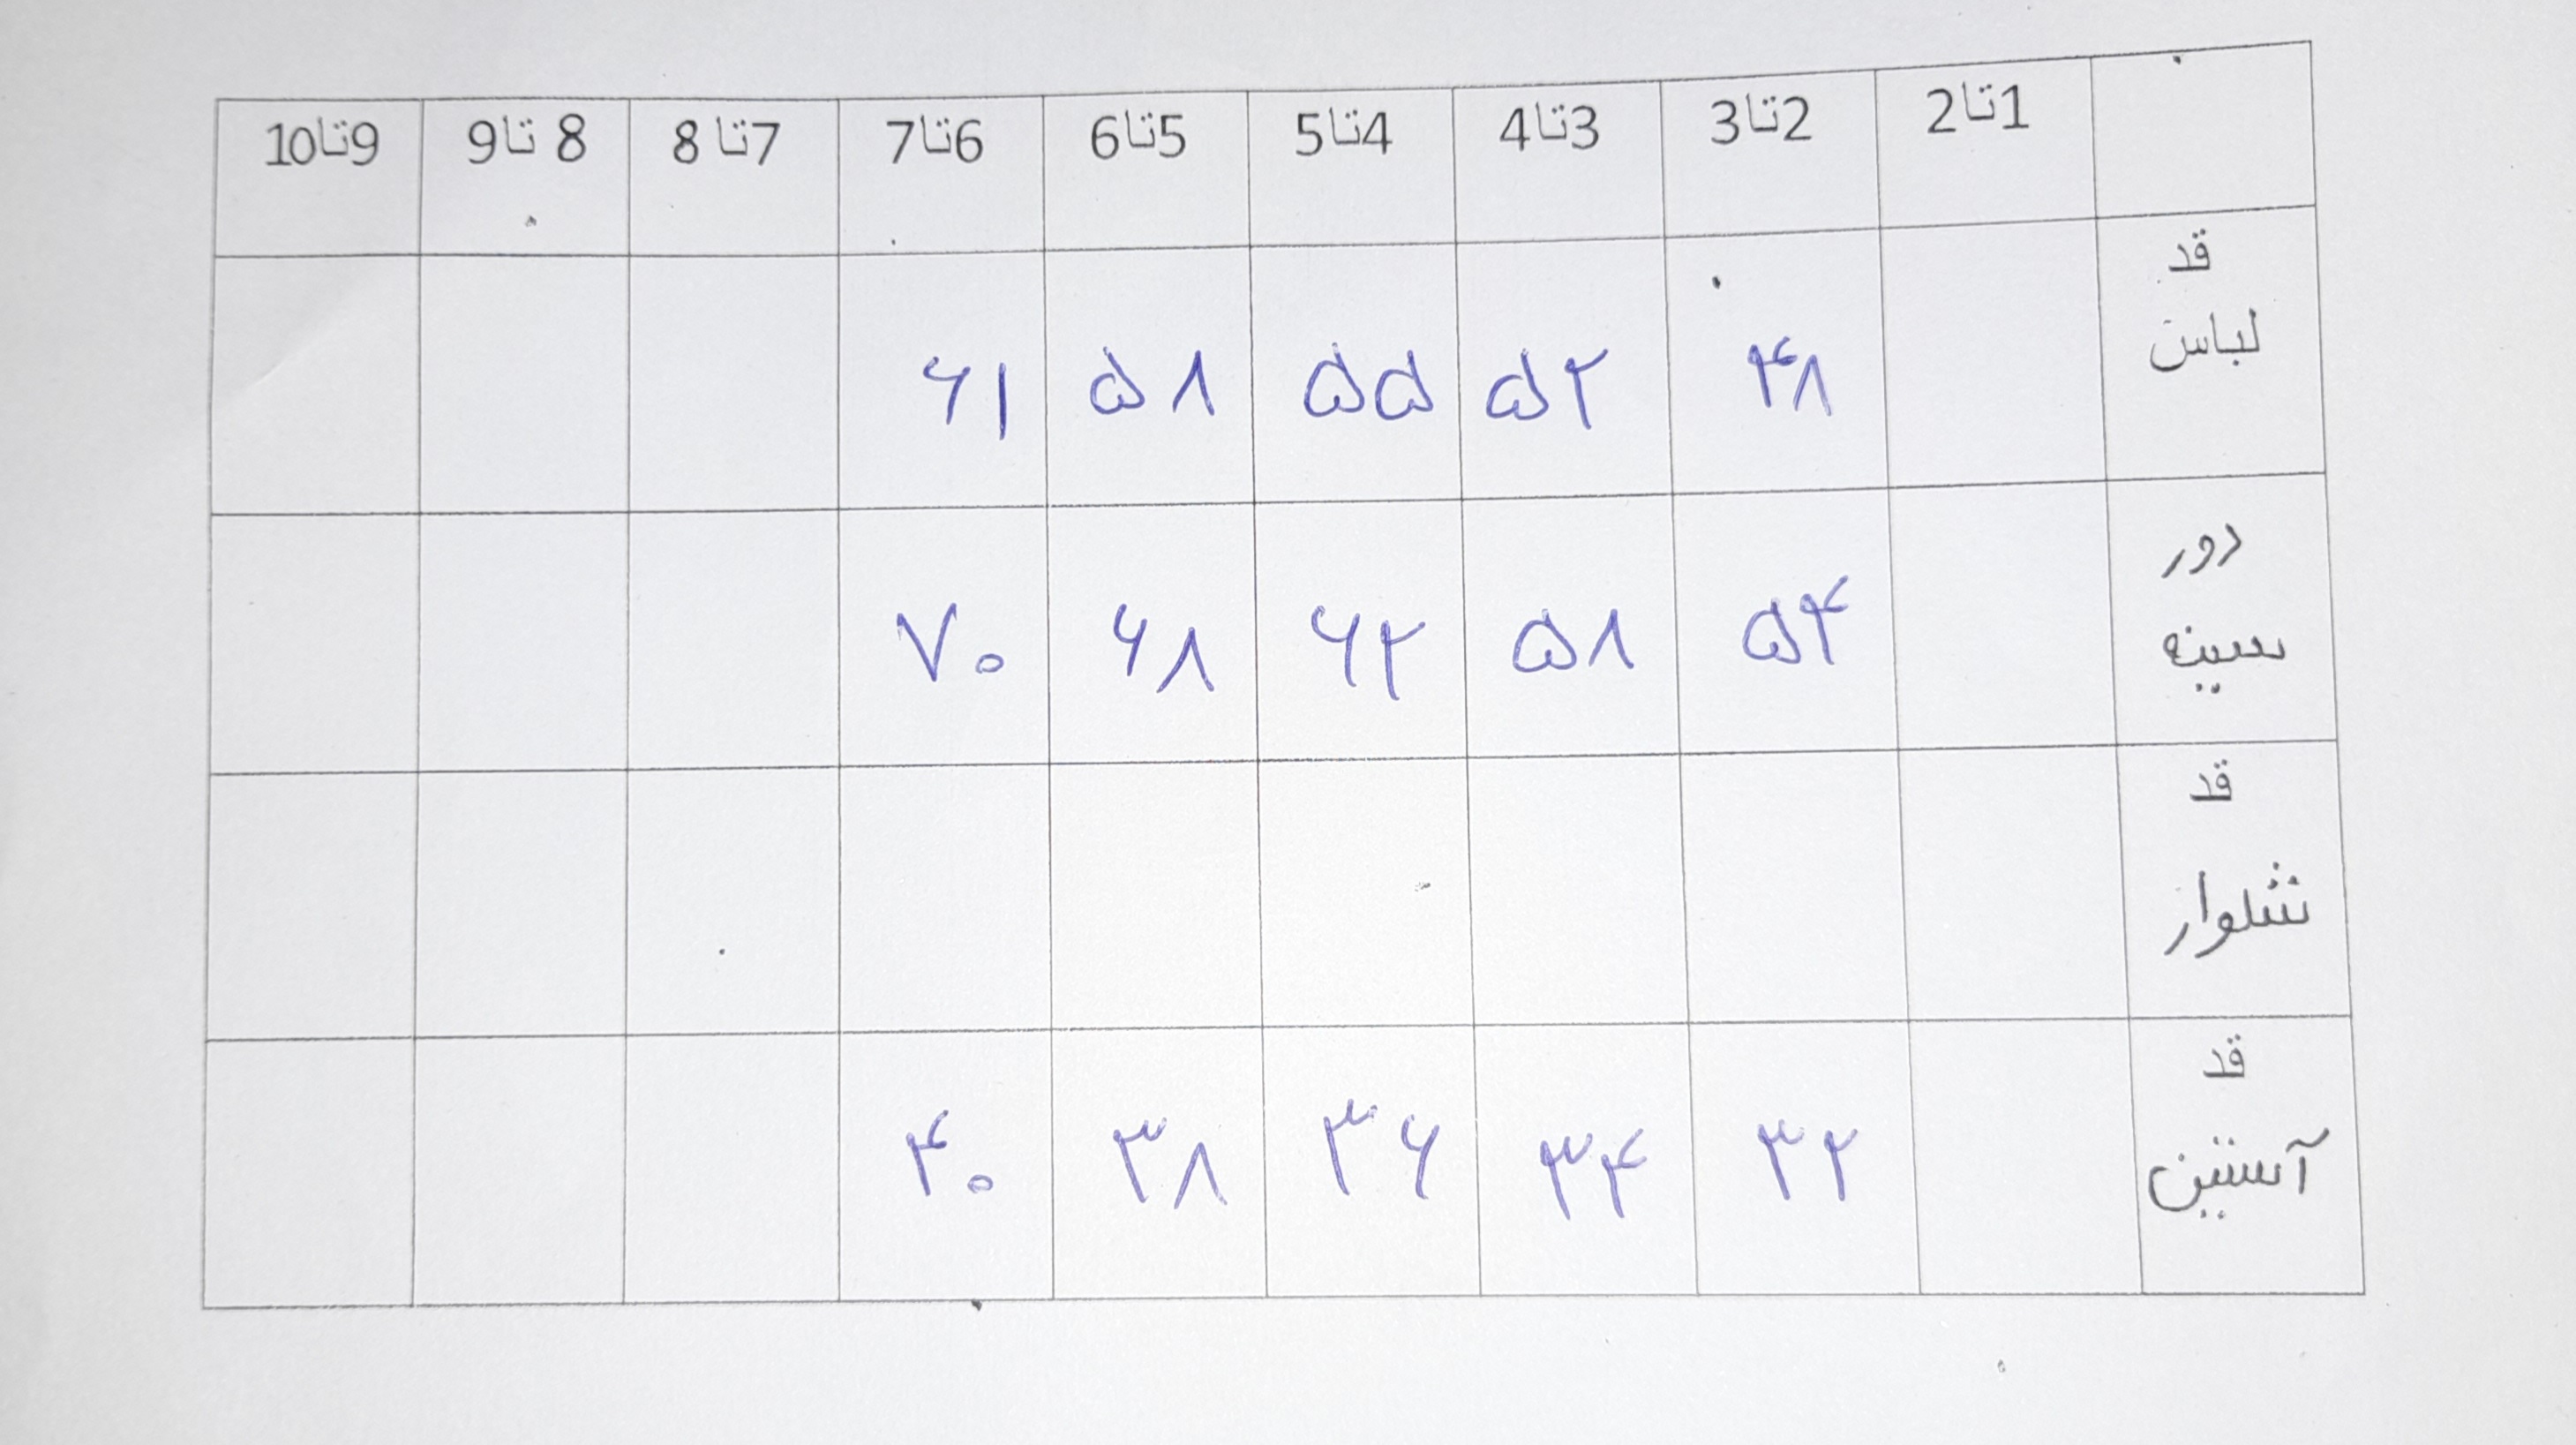 1تا2 2تا3 3تا4 4تا5 5تا6 6تا7 7تا 8 8 تا9 9تا10
قد
لباس ۴۸ ۵۲ ۵۵ ۵۸ ۶۱
دور
سینه ۵۴ ۵۸ ۶۲ ۶۸ ۷۰
قد
شلوار
قد
آستین ۳۲ ۳۴ ۳۶ ۳۸ ۴۰